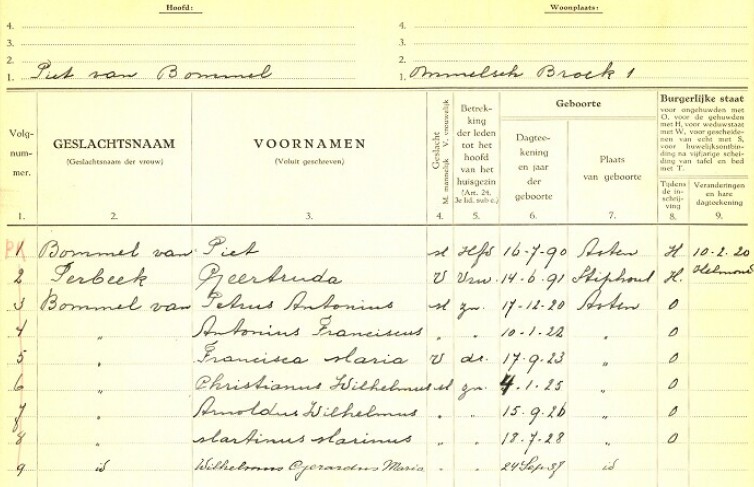 Hoofd: Woonplaats:
4. 4.
3. 3.
2. 2.
1. Piet van Bommel 1. Ommelsch Broek 1
Volgnum-mer. GESLACHTSNAAM (Geslachtsnaam der vrouw) VOORNAMEN (Voluit geschreven) Geslacht M. mannelijk V. vrouwelijk Betrek-king der leden tot het hoofd van het huisgezin (Art. 24, 3e lid, sub c.) Geboorte Dagtee-kening en jaar der geboorte Plaats van geboorte Burgerlijke staat voor ongehuwden met O, voor de gehuwden met H, voor weduwstaat met W, voor gescheide-nen van echt met S, voor huwelijksontbin-ding na vijfjarige schei-ding van tafel en bed met T. Tijdens de in-schrij-ving Veranderingen en hare dagteekening
1. 2. 3. 4. 5. 6. 7. 8. 9.
1 Bommel van Piet M Hfd 16-7-90 Asten H 10-2-20
2 Terbeek Geertruda V Vrw 14-6-91 Stiphout H. Helmond
3 Bommel van Petrus Antonius M zn. 17-12-20 Asten O
4 " Antonius Franciscus " " 10-1-22 " O
5 " Francisca Maria V dr. 17-9-23 " O
6 " Christianus Wilhelmus M zn. 4-1-25 " O
7 " Arnoldus Wilhelmus " " 15-9-26 " O
8 " Martinus Marinus " " 18-7-28 " O
9 id Wilhelmus Gerardus Maria " " 24 Sep. 37 id